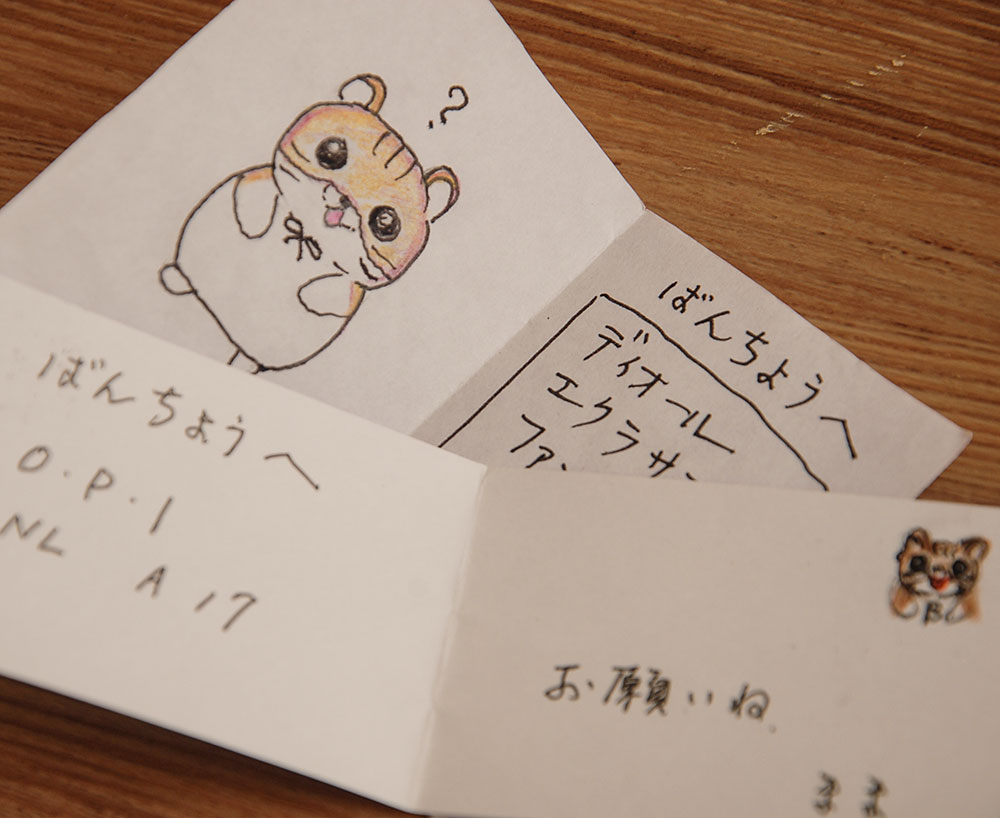 ?
ばんちょうへ
ディオール
エクラサン
ファ
ばんちょうへ
O.P.I
NL A17
お願いね。
まま